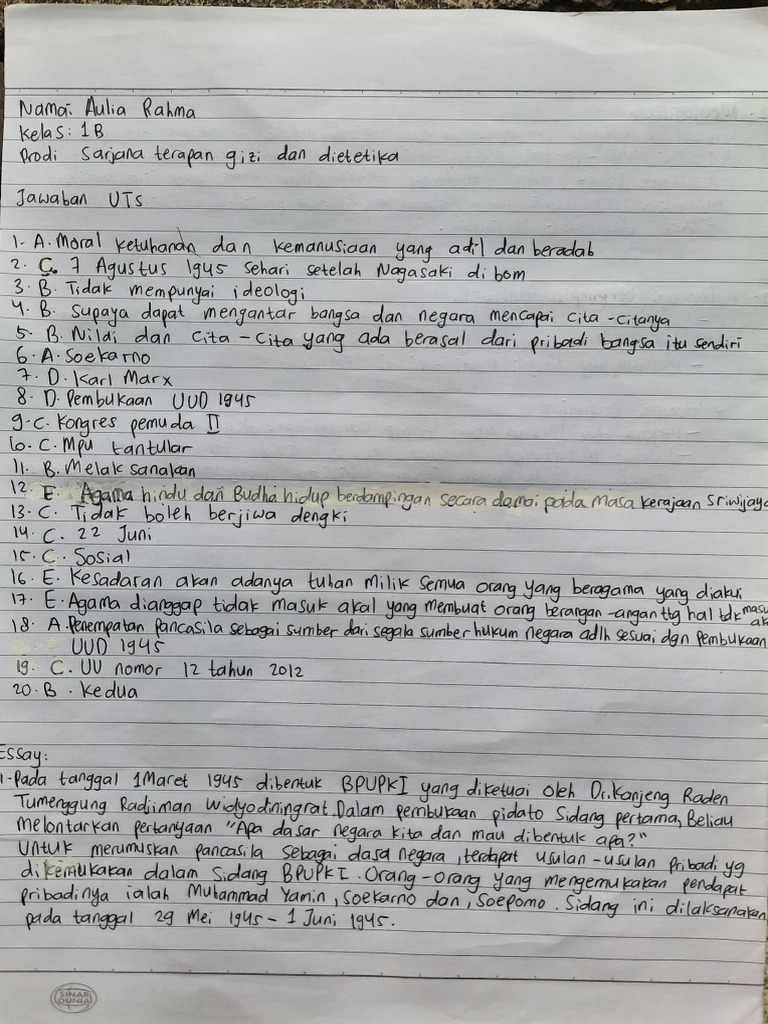 Nama: Aulia Rahma
Kelas: 1B
Prodi Sarjana terapan gizi dan dietetika
Jawaban UTS
1. A. Moral ketuhanan dan kemanusiaan yang adil dan beradab
2. C. 7 Agustus 1945 sehari setelah Nagasaki di bom
3. B. Tidak mempunyai ideologi
4. B. Supaya dapat mengantar bangsa dan negara mencapai cita-citanya
5. B. Nilai dan cita-cita yang ada berasal dari pribadi bangsa itu sendiri
6. A. Soekarno
7. D. Karl Marx
8. D. Pembukaan UUD 1945
9. C. Kongres pemuda II
10. C. Mpu tantular
11. B. Melaksanakan
12. E. Agama hindu dan Budha hidup berdampingan secara damai pada masa kerajaan sriwijaya
13. C. Tidak boleh berjiwa dengki
14. C. 22 Juni
15. C. Sosial
16. E. Kesadaran akan adanya tuhan milik semua orang yang beragama yang diakui
17. E. Agama dianggap tidak masuk akal yang membuat orang berangan-angan ttg hal tdk masuk ak
18. A. Penempatan Pancasila sebagai sumber dari segala sumber hukum negara adlh sesuai dgn Pembukaan
UUD 1945
19. C. UU nomor 12 tahun 2012
20. B. Kedua
Essay:
1. Pada tanggal 1 Maret 1945 dibentuk BPUPKI yang diketuai oleh Dr. Kanjeng Raden
Tumenggung Radjiman Widyodiningrat. Dalam pembukaan pidato Sidang pertama, Beliau
melontarkan pertanyaan "Apa dasar negara kita dan mau dibentuk apa?"
Untuk merumuskan pancasila sebagai dasa negara, terdapat usulan-usulan pribadi yg
dikemukakan dalam Sidang BPUPKI. Orang-orang yang mengemukakan pendapat
pribadinya ialah Muhammad Yamin, Soekarno dan, Soepomo. Sidang ini dilaksanakan
pada tanggal 29 Mei 1945 - 1 Juni 1945.
SINAR DUNIA